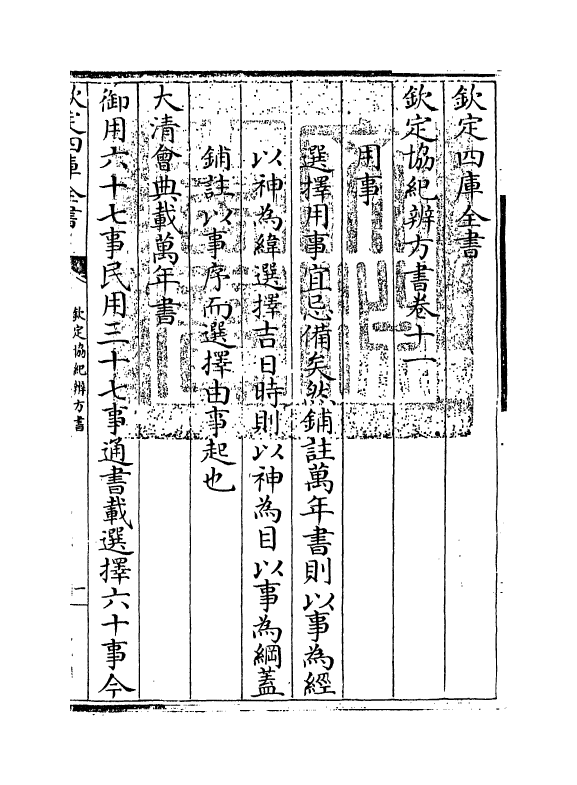 欽定四庫全書
欽定協紀辨方書卷十一
用事
選擇用事宜忌備矣然鋪註萬年書則以事為經
以神為緯選擇吉日時則以神為目以事為綱蓋
鋪註以事序而選擇由事起也
大清會典載萬年書
御用六十七事民用三十七事通書載選擇六十事今
欽定四庫全書
欽定協紀辨方書
一